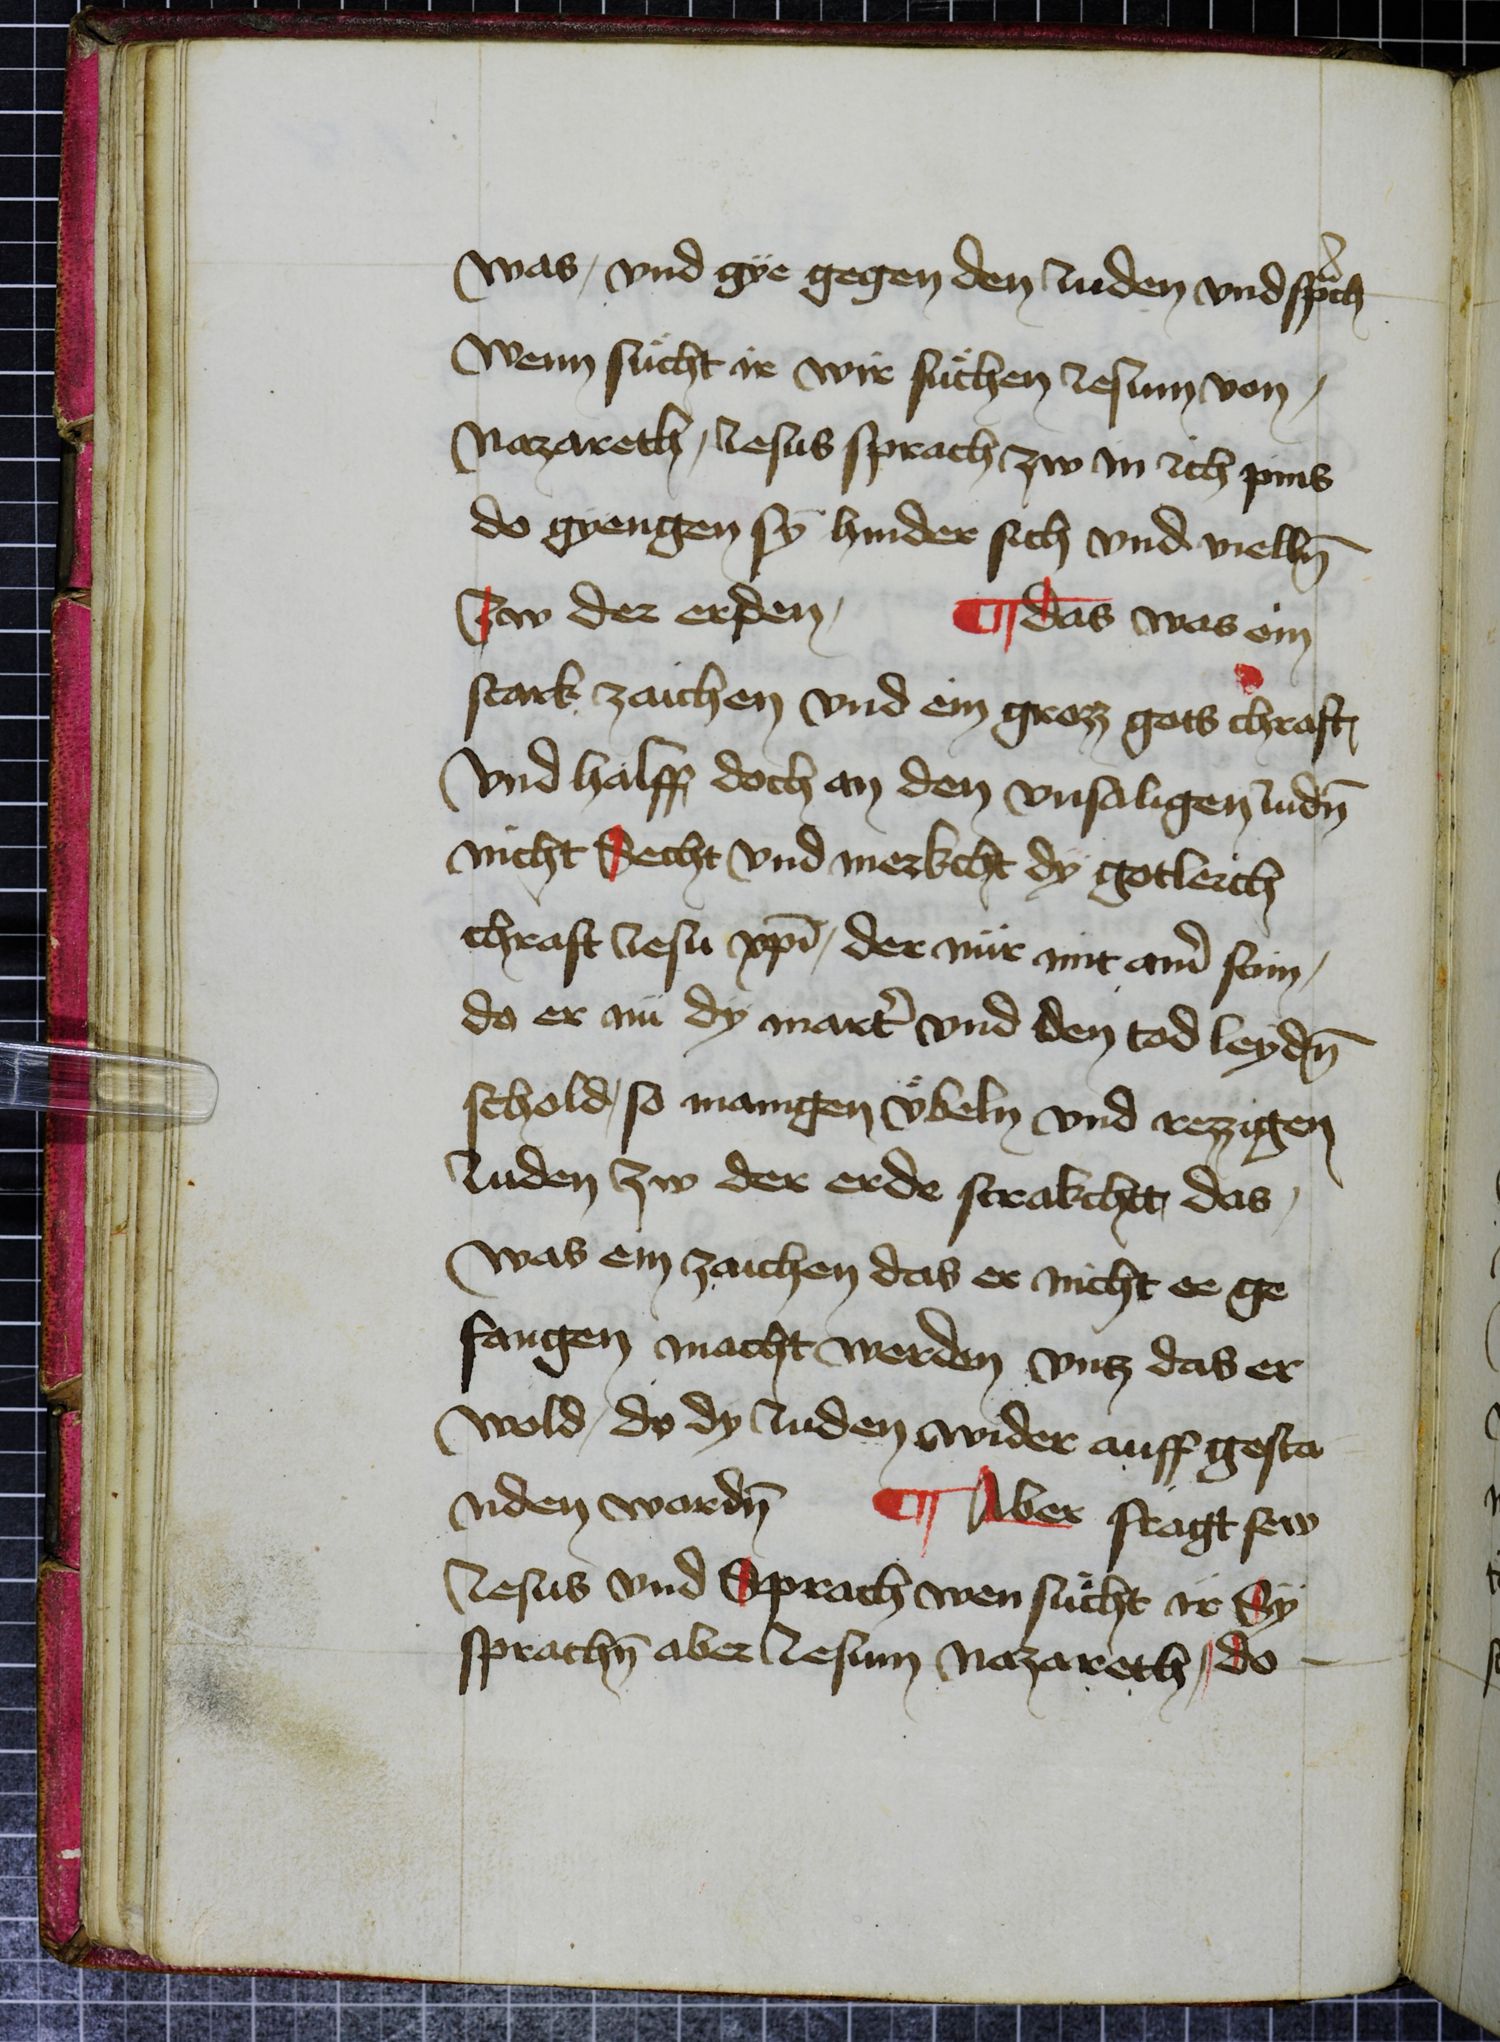 was / vnd gye gegen den Iuden vnd sprach
Wenn sücht ir wir süchen Iesum von /
Nazareth / Iesus sprach zw in ich pins
do gyengen sy hinder sich vnd vielln̄
Zw der erden / ¶ das was ein
stark zaichen vnd ein grozz gots chraft
Vnd halff doch an den vnsaligen Iudn̄
nicht Secht vnd merkcht dy gotleich
chraft Iesu xp̄i / der nür mit aim̄ sein /
do er nü dy mart̉ vnd den tod leydn̄
schold / so manigen v̈beln vnd rezzigen
Iuden zw der erde strakchtt das /
was ein zaichen das er nicht ee ge
fangen macht werden vntz das er
wold / do dy Iuden wider auff gesta
nden wardn̄ ¶ Aber fragt sew
Iesus vnd Sprach wen sücht ir Sÿ
sprachn̄ aber Iesum Nazareth / do